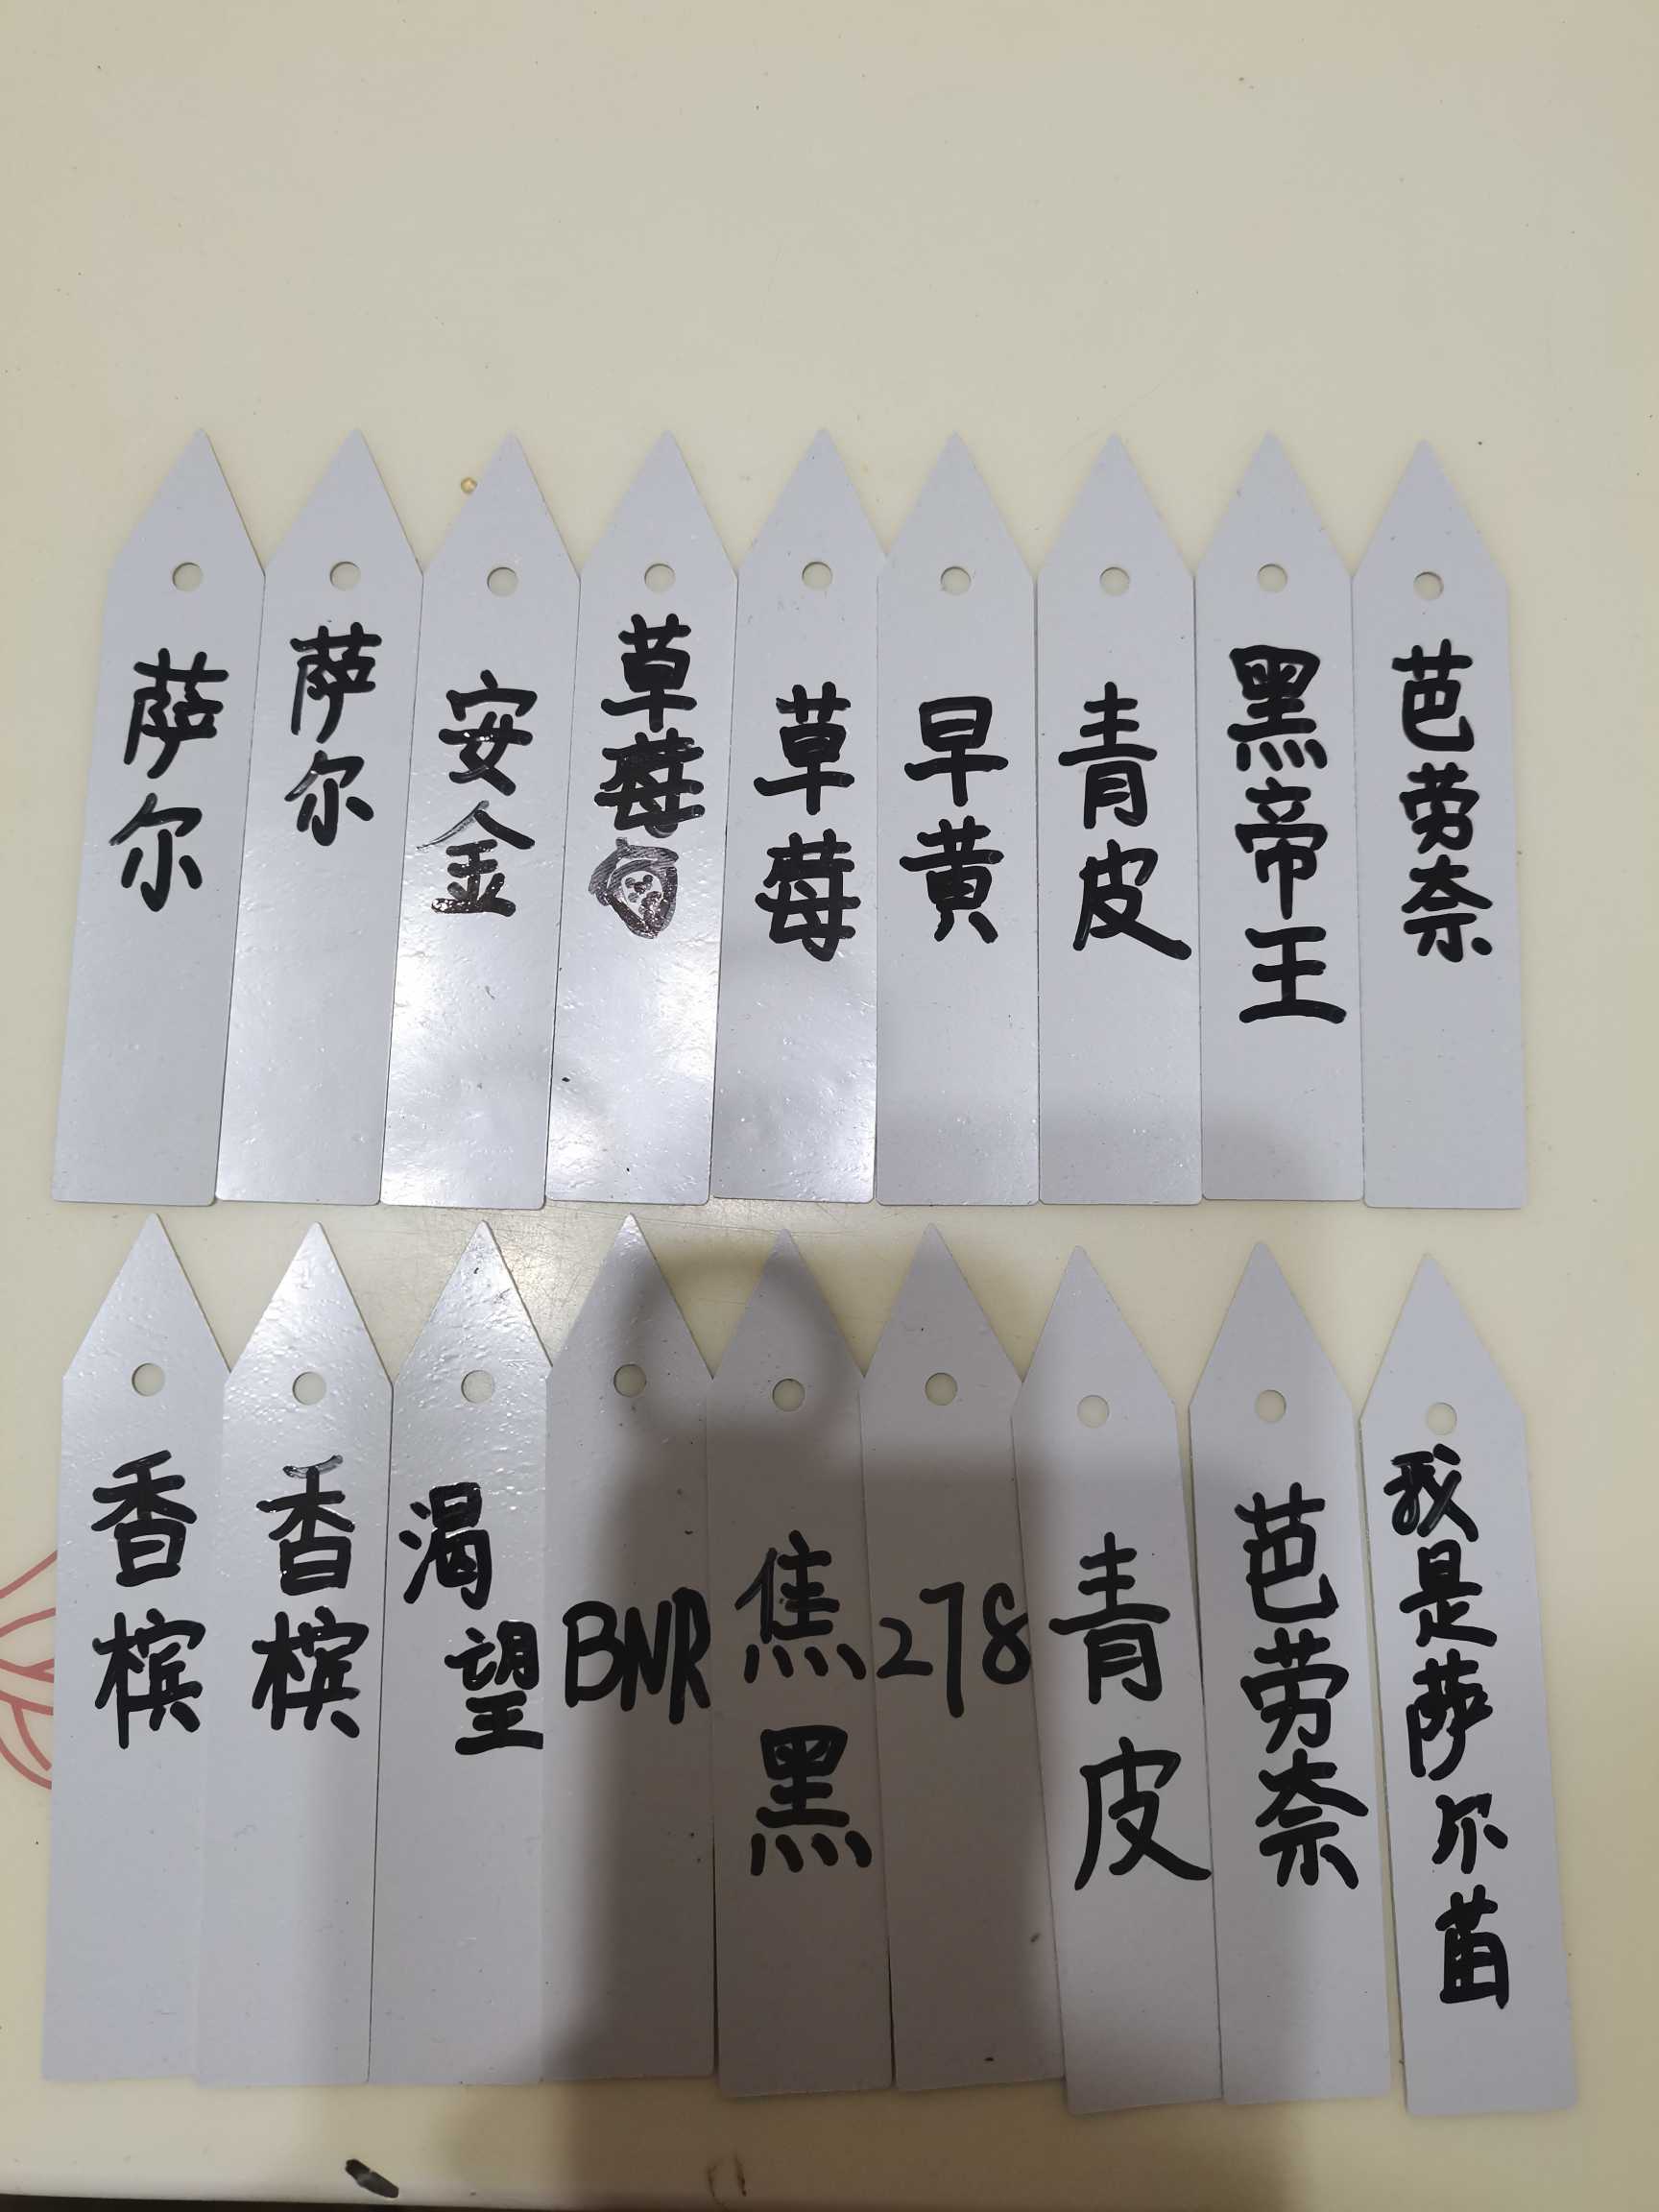 萨尔
萨尔
安金
草莓
草莓
早黄
青皮
黑帝王
芭劳奈
香槟
香槟
渴望
BNR
焦黑
278
青皮
芭劳奈
我是萨尔苗